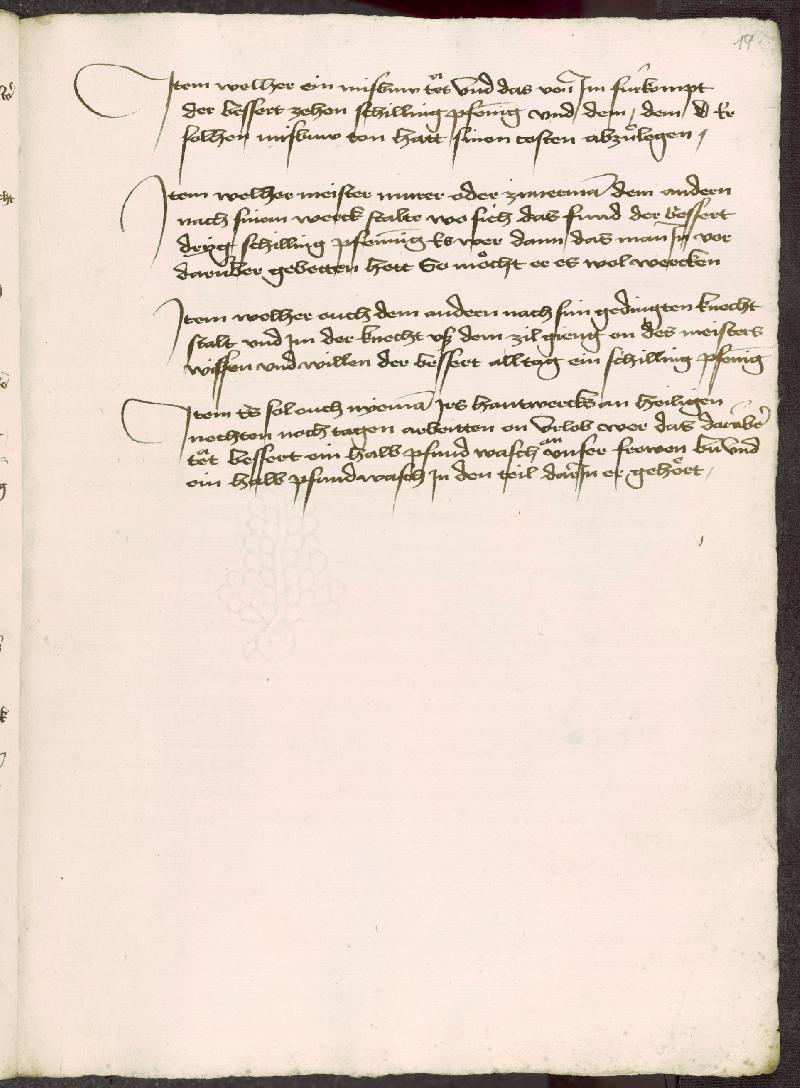 19
Item welher ein misbuw tět vnd das von Im fúrkompt
der bessert zehen schilling pfenīg vnd dem, dem Er
solhen misbuw ton hatt sinen costen abzůlegen,
Item welher meister murer oder zimermā dem andern
nach sinem werck stalte wo sich das fund der bessert
dryg schilling pfennīg Es wer dann das man In vor
darúber gebetten hett So mőcht er es wol wercken
Item welher ouch dem andern nach sim gedingten knecht
stalt vnd Im der knecht vß dem zil gieng on des meisters
wissen vnd willen der bessert all tag ein schilling pfenīg
Item Es sol ouch nyemā Irs hantwercks an heiligen
nechten noch tagen arbeitten on vrlob wer das darúbe
tět bessert ein halb pfund wasch an vnser frowen bw vnd
ein halb pfund wasch In den teil darIn er gehőrt,